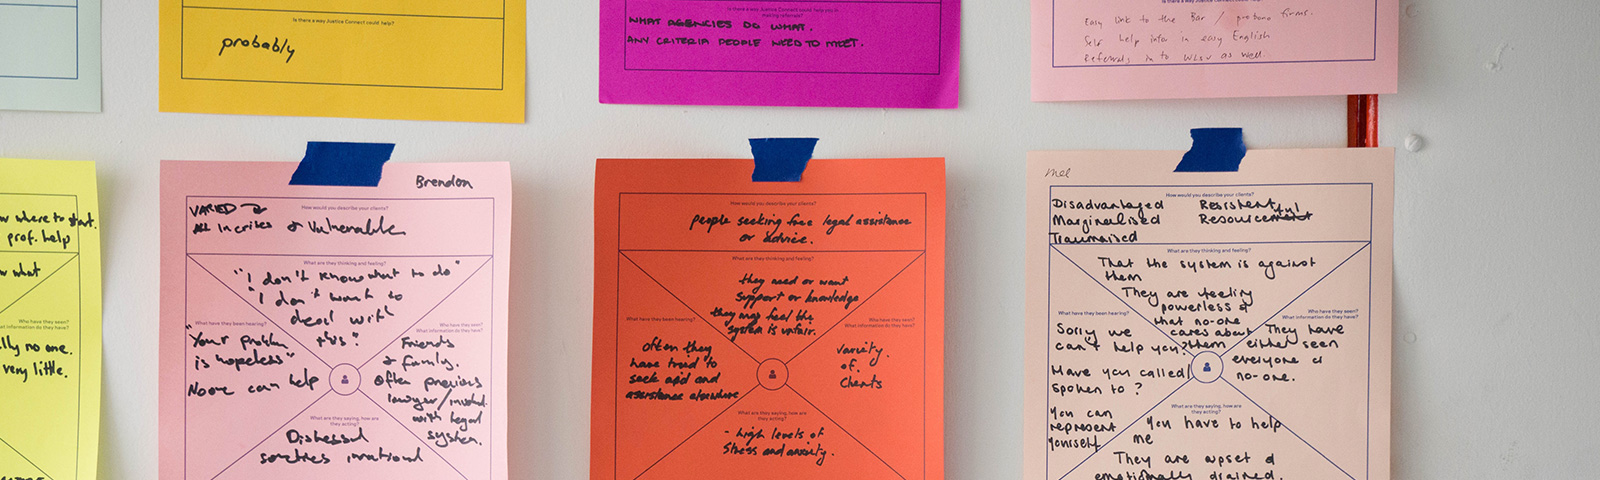 Is there a way Justice Connect could help?
probably
Is there a way Justice Connect could help you in
making referrals?
WHAT AGENCIES DO WHAT.
ANY CRITERIA PEOPLE NEED TO MEET.
Easy link to the Bar / probono firms.
Self help info in easy English
Referrals in to WLSV as well.
where to start.
prof. help
what
no one.
very little.
Brendon
How would you describe your clients?
VARIED
All In crises & Vulnerable
What are they thinking and feeling?
"I don't know what to do"
"I don't want to
deal with
this"
What have they been hearing?
"Your problem
is hopeless"
No one can help
Who have they seen?
What information do they have?
Friends
& family.
Often previous
lawyer/involved
with legal
system.
What are they saying, how are
they acting?
Distressed
sometimes irrational
How would you describe your clients?
people seeking free legal assistance
or advice.
What are they thinking and feeling?
they need or want
support or knowledge
they may feel the
system is unfair.
What have they been hearing?
often they
have tried to
seek aid and
assistance elsewhere
Who have they seen?
What information do they have?
variety
of
clients
What are they saying, how are
they acting?
- high levels of
stress and anxiety.
Mel
How would you describe your clients?
Disadvantaged
Marginalised
Traumatised
Resistent
Resourceful
What are they thinking and feeling?
That the system is against
them
They are feeling
powerless &
that no-one
cares about
them
What have they been hearing?
Sorry we
can't help you?
Have you called/
spoken to?
You can
represent
yourself
Who have they seen?
What information do they have?
They have
either seen
everyone or
no-one.
What are they saying, how are
they acting?
You have to help
me
They are upset &
emotionally drained.